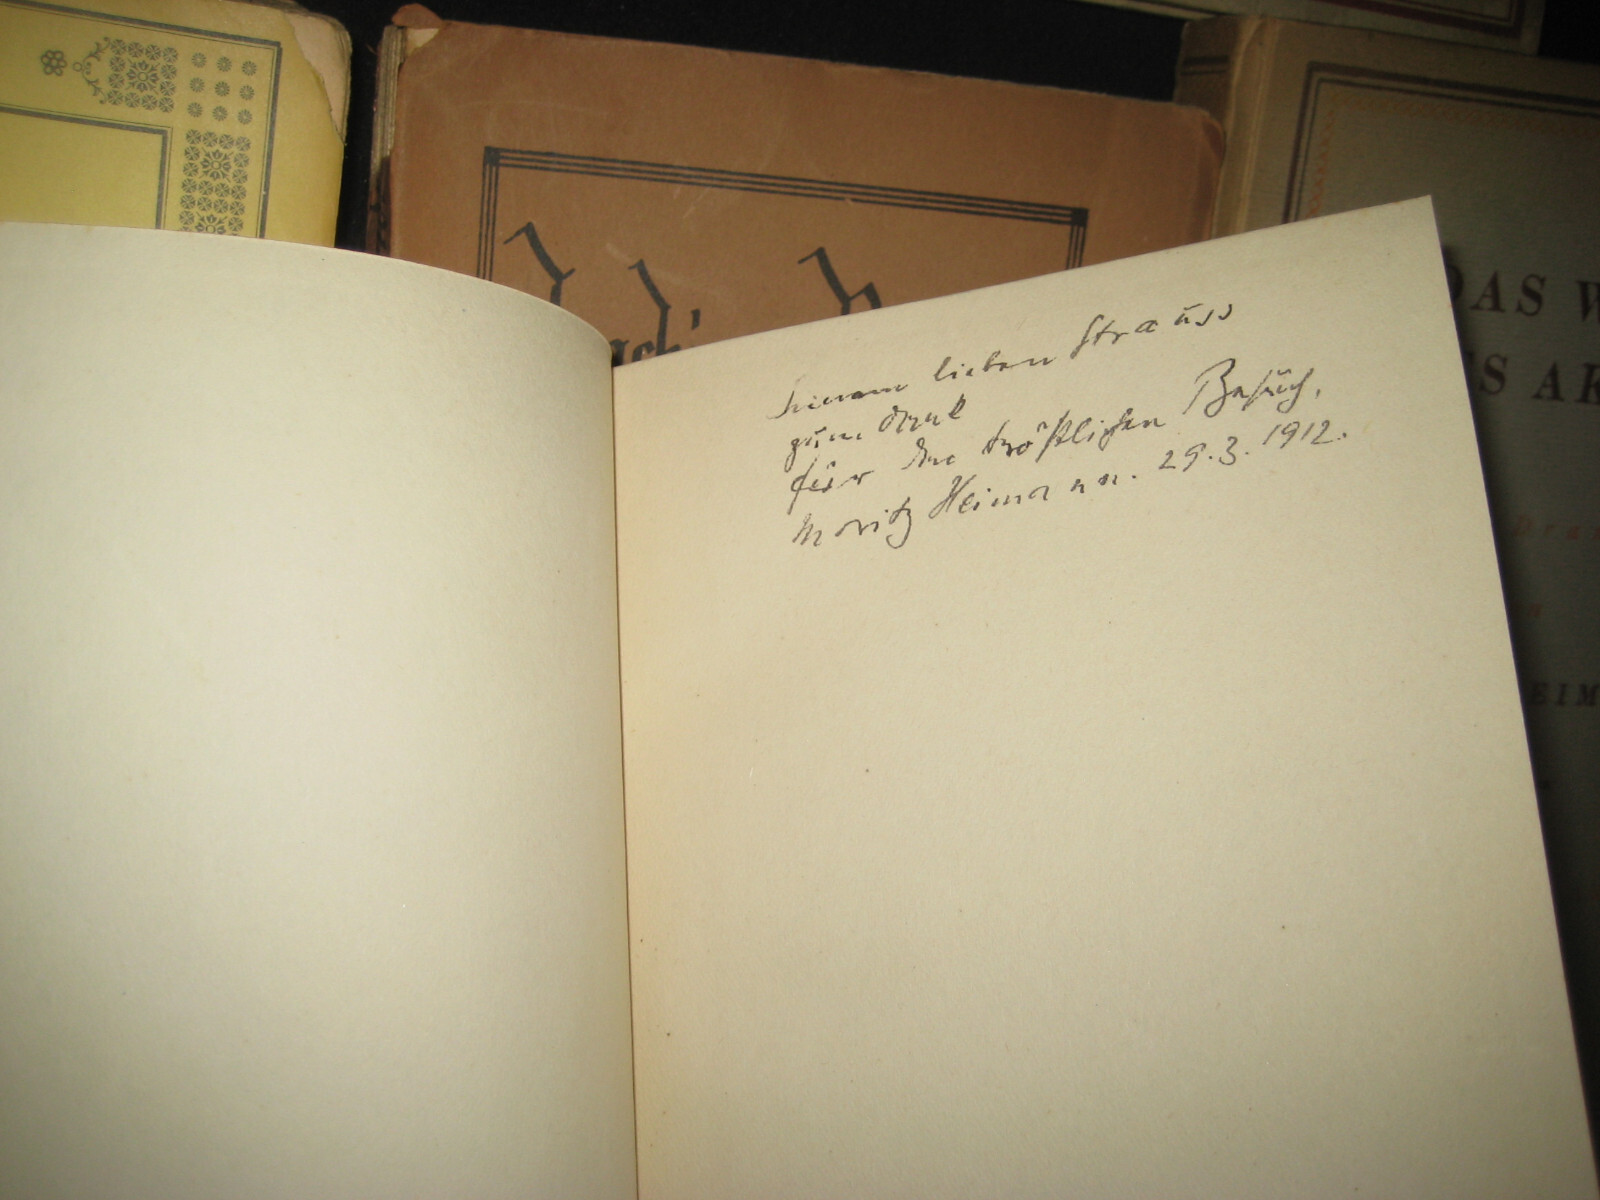 seinem lieben Strauss
zum Dank
für den tröstlichen Besuch,
Moritz Heimann. 29.3.1912.
DAS W
S AR
Dra
EIM